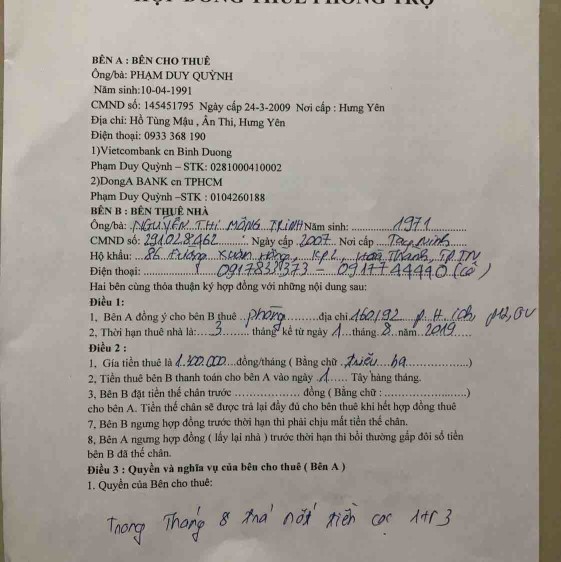 HỢP ĐỒNG THUÊ PHÒNG TRỌ
BÊN A : BÊN CHO THUÊ
Ông/bà: PHẠM DUY QUỲNH
Năm sinh:10-04-1991
CMND số: 145451795 Ngày cấp 24-3-2009 Nơi cấp : Hưng Yên
Địa chỉ: Hồ Tùng Mậu , Ân Thi, Hưng Yên
Điện thoại: 0933 368 190
1)Vietcombank cn Binh Duong
Phạm Duy Quỳnh – STK: 0281000410002
2)DongA BANK cn TPHCM
Phạm Duy Quỳnh –STK : 0104260188
BÊN B : BÊN THUÊ NHÀ
Ông/bà: NGUYỄN THỊ MỘNG TRINH Năm sinh: 1971
CMND số: 291028462 Ngày cấp 2007 Nơi cấp Tây Ninh
Hộ khẩu: 86 Xuân Hồng, KP2,
Điện thoại: 0917838373 – 0917744440
Hai bên cùng thỏa thuận ký hợp đồng với những nội dung sau:
Điều 1:
1, Bên A đồng ý cho bên B thuê phòng địa chỉ 160/92
2, Thời hạn thuê nhà là: 3 tháng kể từ ngày 1 tháng 8 năm 2019
Điều 2 :
1, Gía tiền thuê là 1.300.000 đồng/tháng ( Bằng chữ : triệu ba )
2, Tiền thuê bên B thanh toán cho bên A vào ngày 1 Tây hàng tháng.
3, Bên B đặt tiền thế chân trước ................ đồng ( Bằng chữ : ....................)
cho bên A. Tiền thế chân sẽ được trả lại đầy đủ cho bên thuê khi hết hợp đồng thuê
7, Bên B ngưng hợp đồng trước thời hạn thì phải chịu mất tiền thế chân.
8, Bên A ngưng hợp đồng ( lấy lại nhà ) trước thời hạn thì bồi thường gấp đôi số tiền
bên B đã thế chân.
Điều 3 : Quyền và nghĩa vụ của bên cho thuê ( Bên A )
1. Quyền của Bên cho thuê:
Trong Tháng 8 trả nốt tiền cọc 1tr3